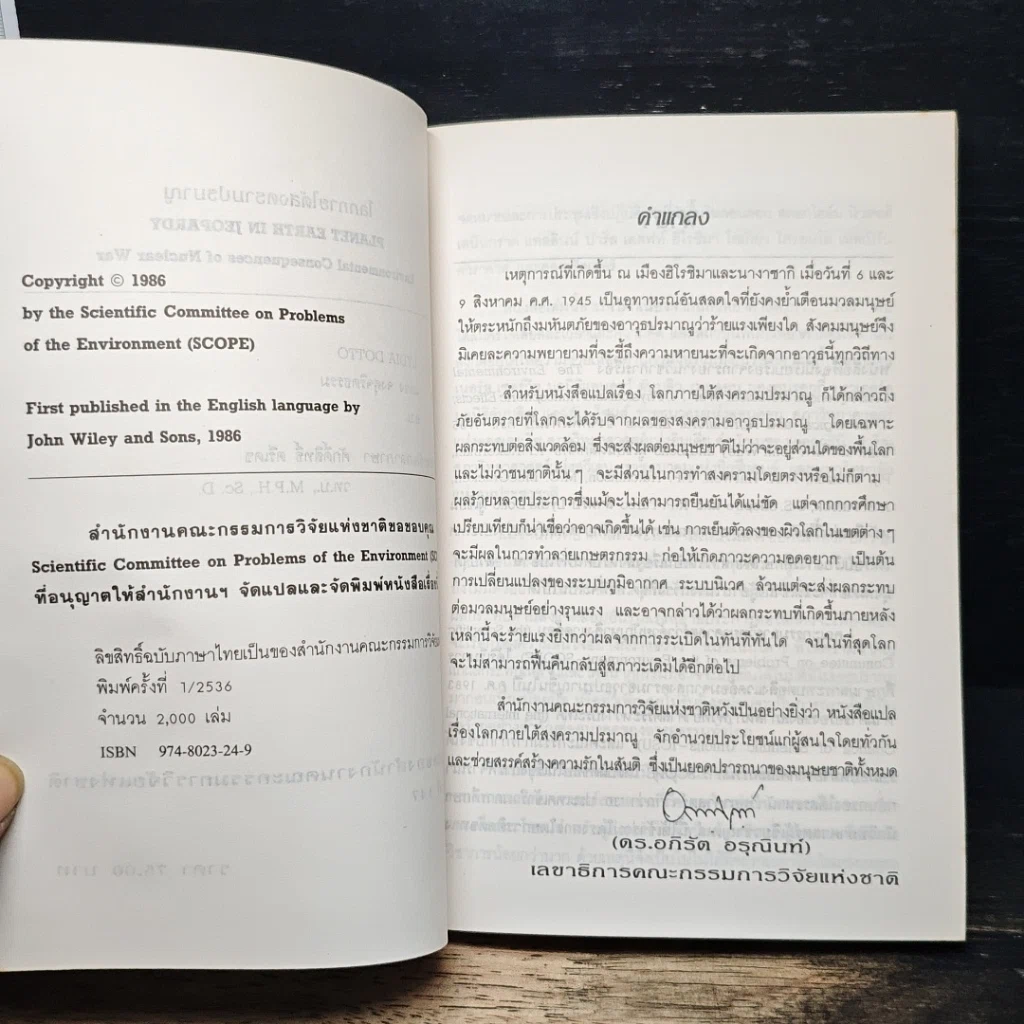 Copyright © 1986
by the Scientific Committee on Problems
of the Environment (SCOPE)
First published in the English language by
John Wiley and Sons, 1986
สำนักงานคณะกรรมการวิจัยแห่งชาติขอขอบคุณ
Scientific Committee on Problems of the Environment
ที่อนุญาตให้สำนักงานฯ จัดแปลและจัดพิมพ์หนังสือเรื่อง
ลิขสิทธิ์ฉบับภาษาไทยเป็นของสำนักงานคณะกรรมการวิจัย
พิมพ์ครั้งที่ 1/2536
จำนวน 2,000 เล่ม
ISBN 974-8023-24-9
คำแถลง
เหตุการณ์ที่เกิดขึ้น ณ เมืองฮิโรชิมาและนางาซากิ เมื่อวันที่ 6 และ
9 สิงหาคม ค.ศ. 1945 เป็นอุทาหรณ์อันสลดใจที่ยังคงย้ำเตือนมวลมนุษย์
ให้ตระหนักถึงมหันตภัยของอาวุธปรมาณูว่าร้ายแรงเพียงใด สังคมมนุษย์จึง
มิเคยละความพยายามที่จะชี้ถึงความหายนะที่จะเกิดจากอาวุธนี้ทุกวิถีทาง
สำหรับหนังสือแปลเรื่อง โลกภายใต้สงครามปรมาณู ก็ได้กล่าวถึง
ภัยอันตรายที่โลกจะได้รับจากผลของสงครามอาวุธปรมาณู โดยเฉพาะ
ผลกระทบต่อสิ่งแวดล้อม ซึ่งจะส่งผลต่อมนุษยชาติไม่ว่าจะอยู่ส่วนใดของพื้นโลก
และไม่ว่าชนชาตินั้น ๆ จะมีส่วนในการทำสงครามโดยตรงหรือไม่ก็ตาม
ผลร้ายหลายประการซึ่งแม้จะไม่สามารถยืนยันได้แน่ชัด แต่จากการศึกษา
เปรียบเทียบก็น่าเชื่อว่าอาจเกิดขึ้นได้ เช่น การเย็นตัวลงของผิวโลกในเขตต่าง ๆ
จะมีผลในการทำลายเกษตรกรรม ก่อให้เกิดภาวะความอดอยาก เป็นต้น
การเปลี่ยนแปลงของระบบภูมิอากาศ ระบบนิเวศ ล้วนแต่จะส่งผลกระทบ
ต่อมวลมนุษย์อย่างรุนแรง และอาจกล่าวได้ว่าผลกระทบที่เกิดขึ้นภายหลัง
เหล่านี้จะร้ายแรงยิ่งกว่าผลจากการระเบิดในทันทีทันใด จนในที่สุดโลก
จะไม่สามารถฟื้นคืนกลับสู่สภาวะเดิมได้อีกต่อไป
สำนักงานคณะกรรมการวิจัยแห่งชาติหวังเป็นอย่างยิ่งว่า หนังสือแปล
เรื่องโลกภายใต้สงครามปรมาณู จักอำนวยประโยชน์แก่ผู้สนใจโดยทั่วกัน
และช่วยสรรค์สร้างความรักในสันติ ซึ่งเป็นยอดปรารถนาของมนุษยชาติทั้งหมด
(ดร.อภิรัต อรุณินท์)
เลขาธิการคณะกรรมการวิจัยแห่งชาติ